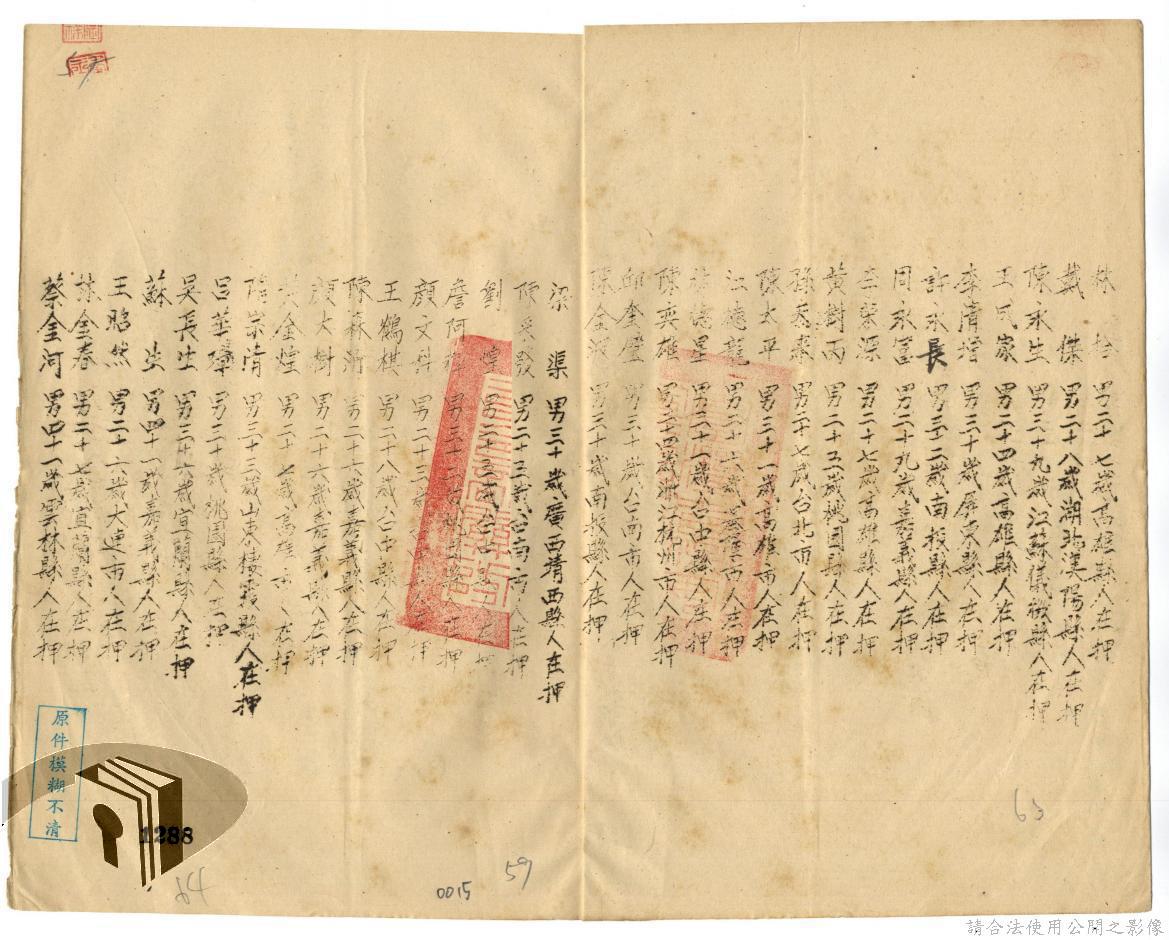 林 拾 男二十七歲高雄縣人在押
戴 傑 男二十八歲湖北漢陽縣人在押
陳永生 男三十九歲江蘇儀徵縣人在押
王 家 男二十四歲高雄縣人在押
李清增 男三十歲屏東縣人在押
許水長 男三十二歲南投縣人在押
周永富 男二十九歲嘉義縣人在押
李榮源 男二十七歲高雄縣人在押
黃樹丙 男二十五歲桃園縣人在押
孫 男二十七歲台北市人在押
陳太平 男三十一歲高雄市人在押
江德龍 男二十六歲基隆市人在押
林德星 男二十一歲台中縣人在押
陳奕雄 男二十四歲浙江杭州市人在押
邱奎璧 男三十歲台南市人在押
陳金波 男三十歲南投縣人在押
梁 渠 男三十歲廣西靖西縣人在押
陳 男二十五歲台南市人在押
劉 煌 男二十 歲台 在押
詹阿 男三十 歲 人在押
顏文 男二十 在押
王鶴棋 男二十八歲台中縣人在押
陳森 男二十六歲嘉義縣人在押
顏大樹 男二十六歲嘉義縣人在押
黃金煌 男二十七歲高雄市人在押
隋崇清 男三十三歲山東棲霞縣人在押
呂華璋 男二十歲桃園縣人在押
吳長生 男三十六歲宜蘭縣人在押
蘇 生 男四十一歲嘉義縣人在押
王照然 男二十六歲大連市人在押
林金春 男二十七歲宜蘭縣人在押
蔡金河 男四十一歲雲林縣人在押
63
59
0015
64
1288
原件模糊不清
請合法使用公開之影像